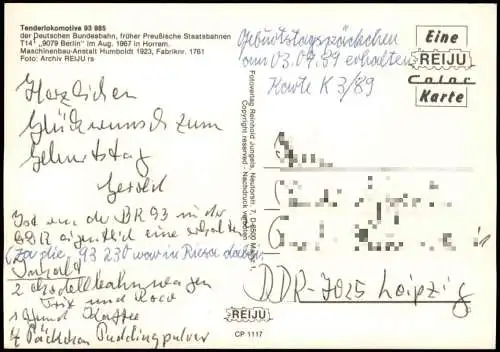 Tenderlokomotive 93 985
der Deutschen Bundesbahn, früher Preußische Staatsbahnen
T14¹ „9079 Berlin“ im Aug. 1967 in Horrem.
Maschinenbau-Anstalt Humboldt 1923, Fabriknr. 1761
Foto: Archiv REIJU rs
Geburtstagspäckchen
am 03.07.89 erhalten
Karte K 3/89
Eine
REIJU
Color
Karte
Herzlichen
Glückwunsch zum
Geburtstag
Gerd
Ist von der BR 93 in der
DDR eigentlich eine erhalten
(Ja die, 93 230 war in Riesa dabei)
Inhalt
2 Modellbahnwagen
Trix und Roco
1 Pfund Kaffee
4 Päckchen Puddingpulver
Fotoverlag Reinhold Jungels, Neutorstr. 7, D-6500 Mainz 1,
Copyright reserved - Nachdruck verboten
DDR-7025 Leipzig
REIJU
CP 1117